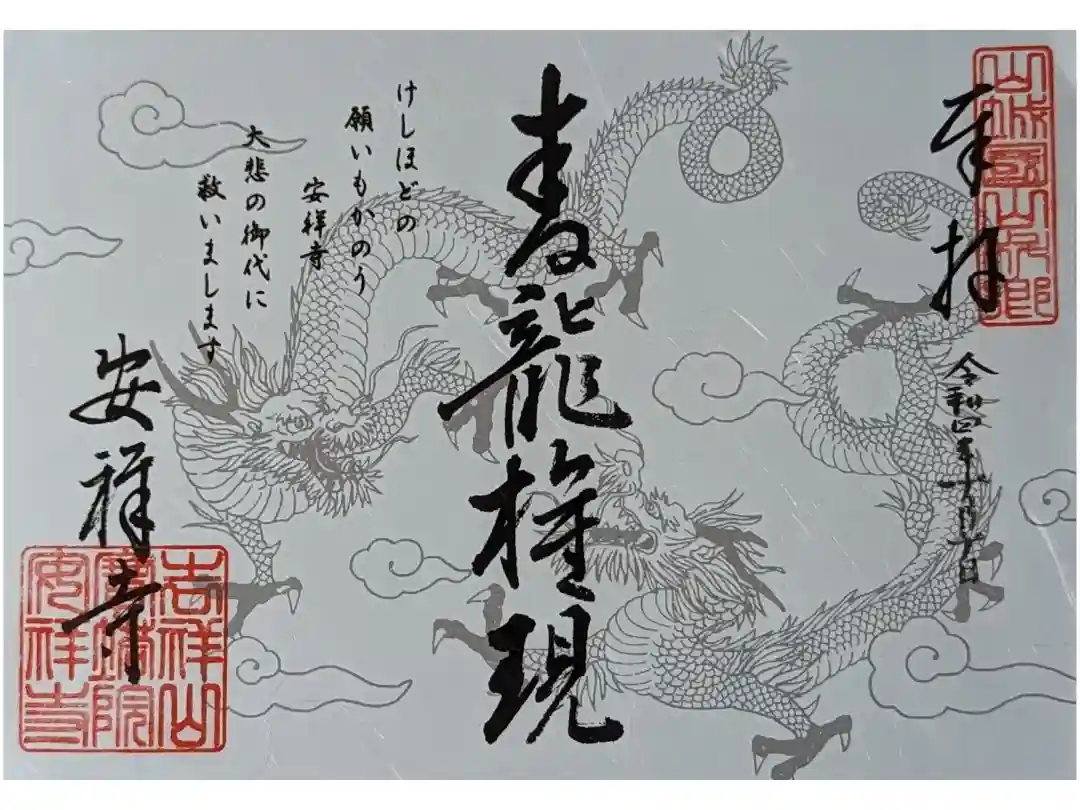 山城國山科郷
奉拝
令和四年
青龍権現
けしほどの
願いもかのう
安祥寺
大悲の御代に
救いまします
安祥寺
吉祥山
寶塔院
安祥寺